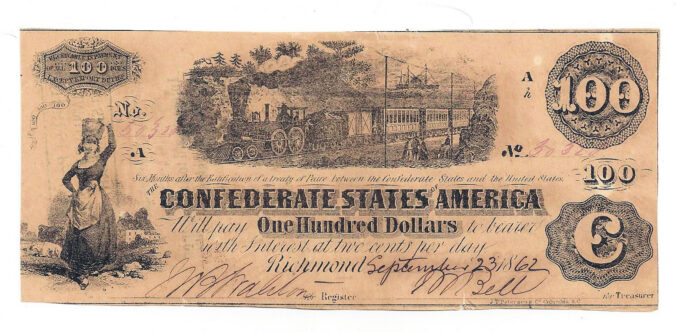 RECEIVABLE IN PAYMENT
OF ALL 100 DUES
EXCEPT EXPORT DUTIES
100
A
h
100
No.
A
No.
100
Six Months after the Ratification of a Treaty of Peace between the Confederate States and the United States.
THE
CONFEDERATE STATES OF AMERICA
Will pay One Hundred Dollars to bearer
with Interest at two cents per day
Richmond September 23 1862
for Register
for Treasurer
C